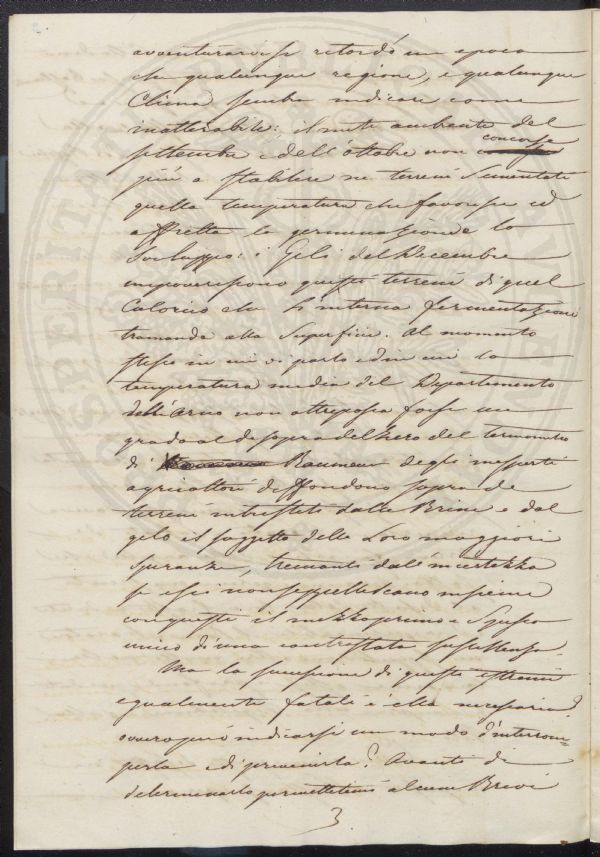 avventurarvi si ritardò un epoca
che qualunque regione, e qualunque
Clima sembra indicare come
inalterabile: il mite ambiente del
settembre e dell'ottobre non concorse
più a stabilire ne terreni Sementati
quella temperatura che favorisce ed
affretta la germinazione de lo
Sviluppo: i Geli del Decembre
impoveriscono questi terreni di quel
Calorico che l'interna fermentazione
tramanda alla Superficie. Al momento
stesso in cui vi parlo ed in cui la
temperatura media del Departimento
dell'Arno non oltrepassa forse un
grado al di sopra del Zero del termometro
di Reaumeur degli inesperti
agricoltori diffondono sopra de
terreni intristiti dalle Brine e dal
gelo il soggetto delle Loro maggiori
speranze, tremanti dall'incertezza
se essi non seppelliscano insieme
con questi il mezzo primo e Spesso
unico di una contrastata sussistenza.
Ma la successione di questi estremi
egualmente fatali è ella necessaria?
ovvero può indicarsi un modo d'interrom-
perla e di prevenirla? Avanti di
determinarlo permettetemi alcune Brevi
3
PROSPERITATI PUBLICAE